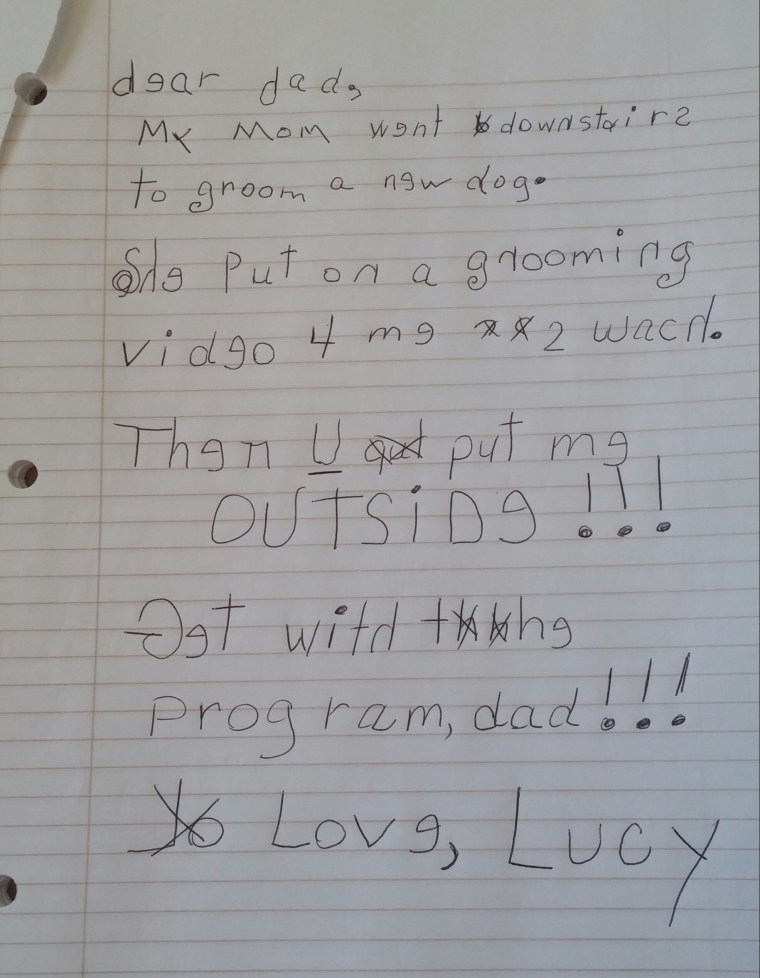 dear dad,
My Mom went downstairs
to groom a new dog.
She put on a grooming
video 4 me 2 wach.
Then U put me
OUTSiDe !!!
Get with the
program, dad!!!
Love, Lucy